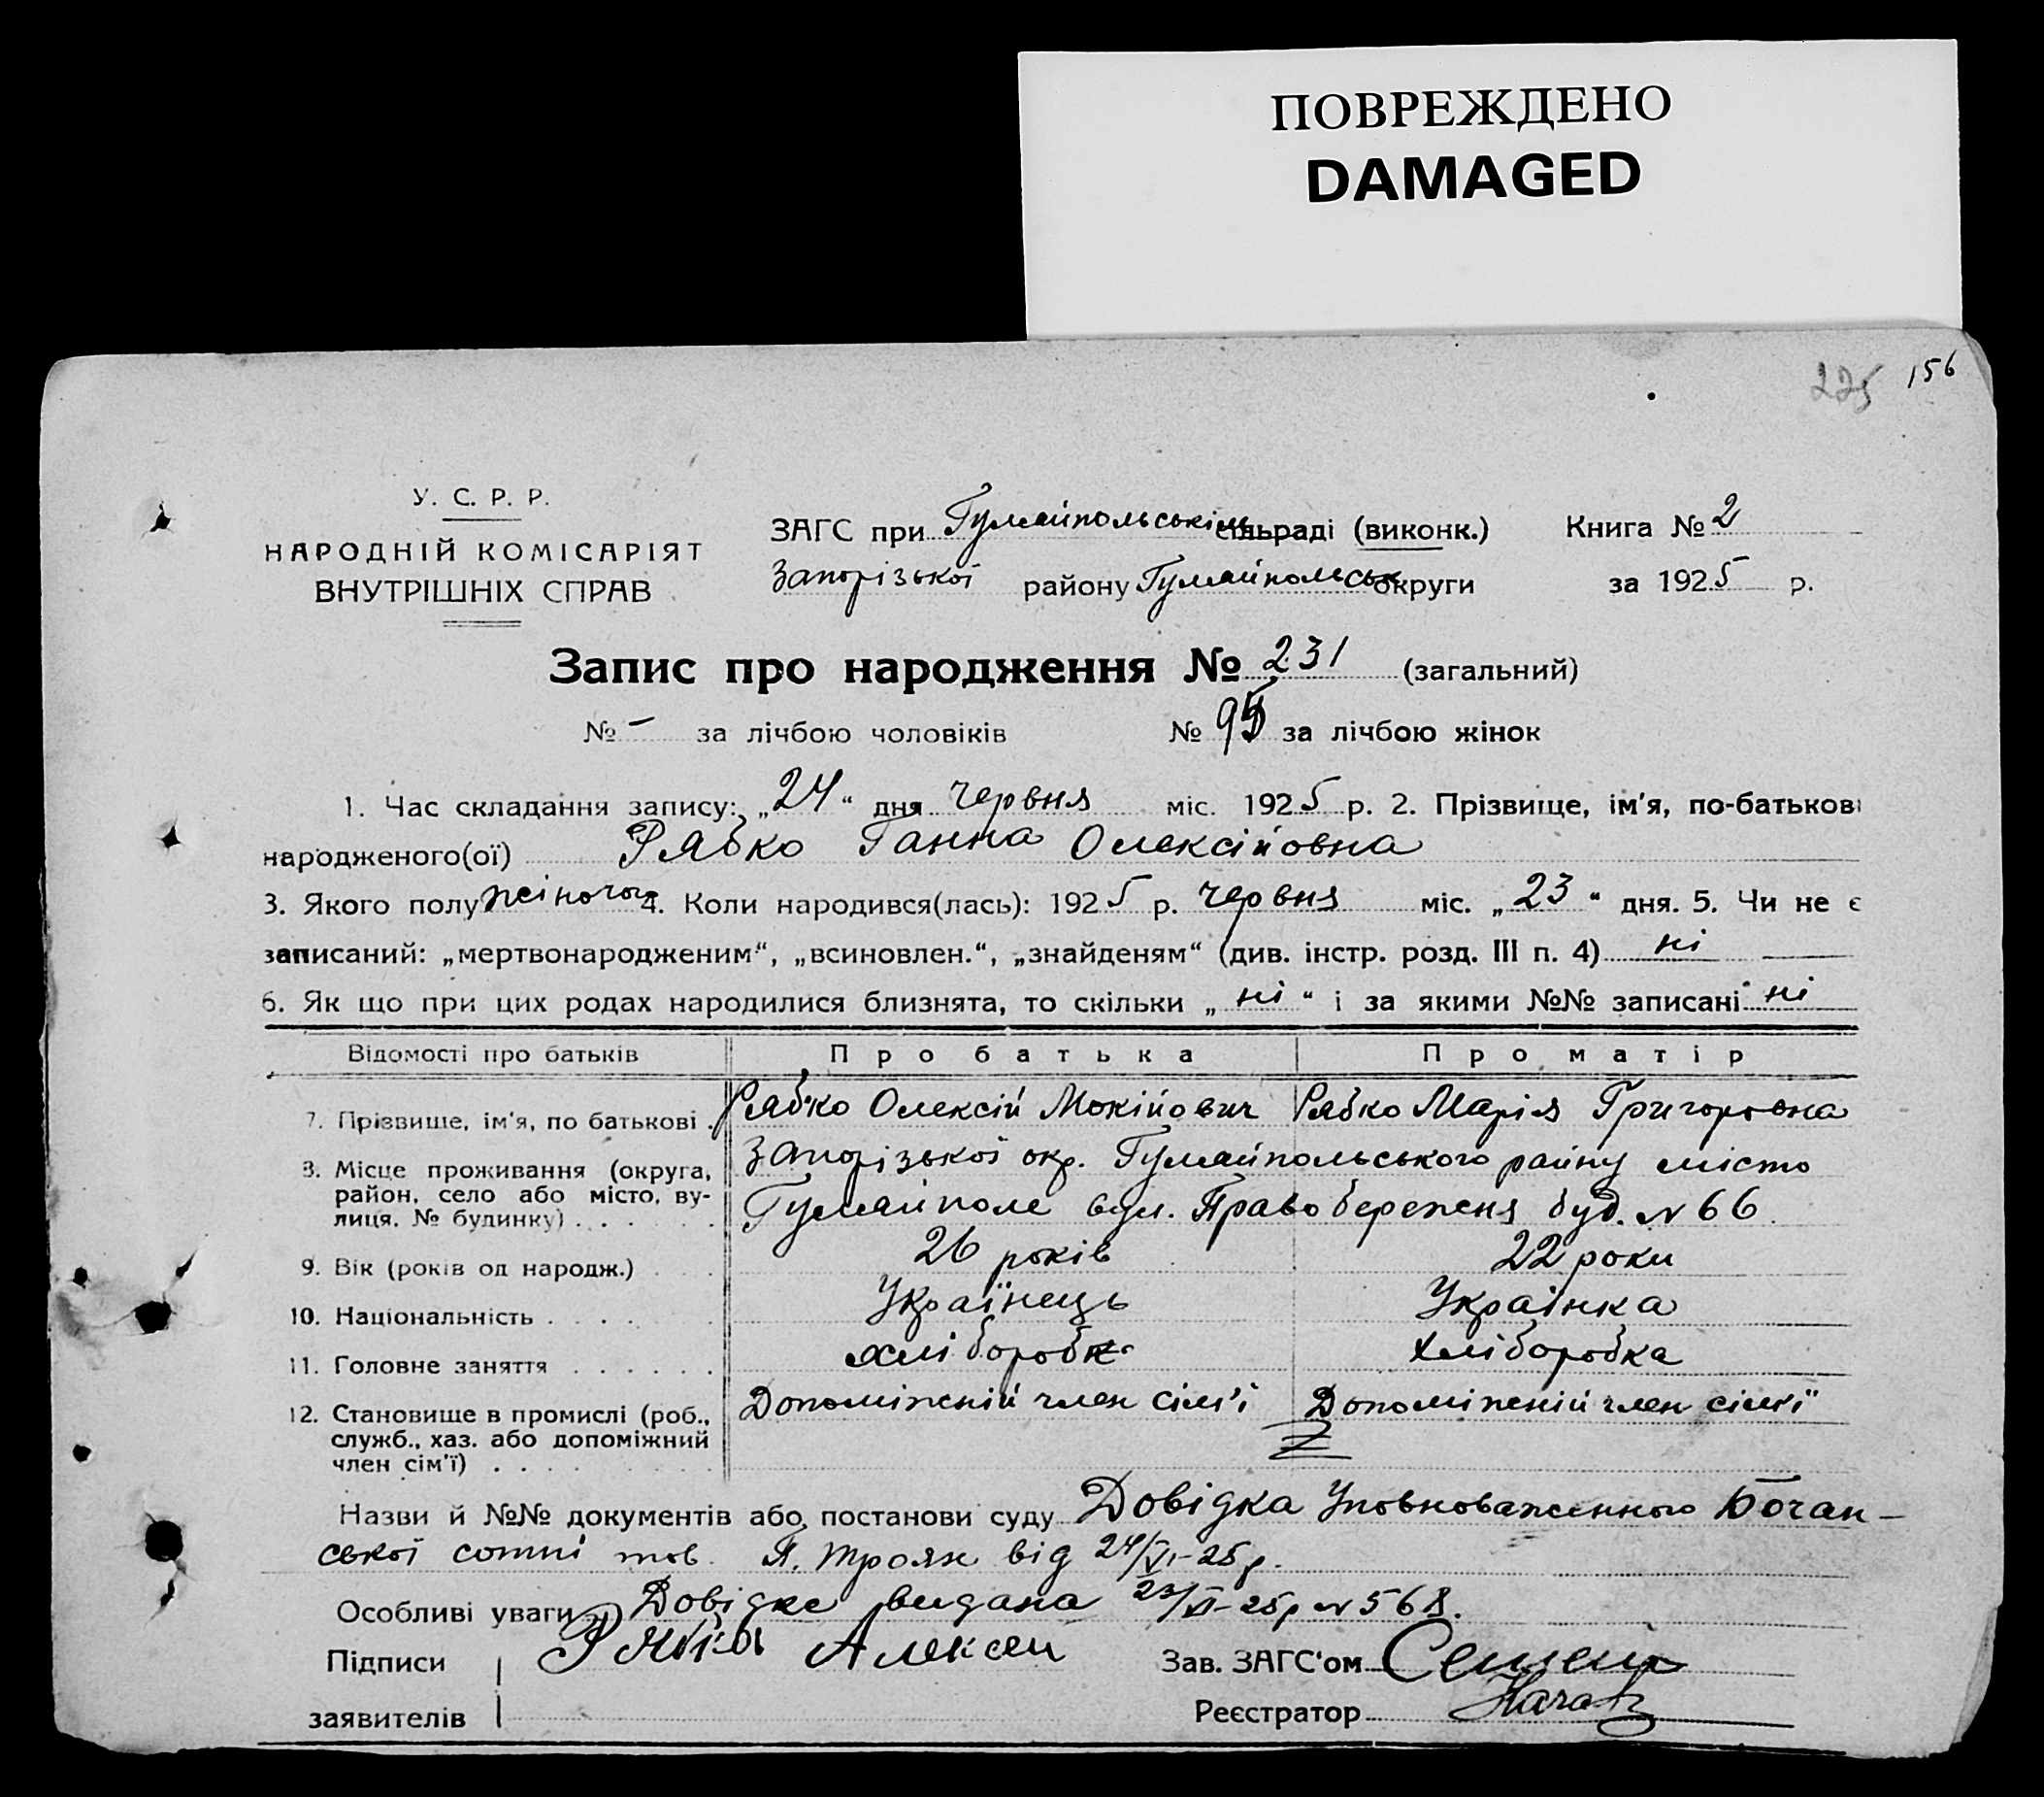 ПОВРЕЖДЕНО
DAMAGED
225 156
У. С. Р. Р.
НАРОДНІЙ КОМІСАРІЯТ
ВНУТРІШНІХ СПРАВ
ЗАГС при Гуляйпольській сільраді (виконк.) Книга № 2
Запорізької району Гуляйпольськ округи за 1925 р.
Запис про народження № 231 (загальний)
№ – за лічбою чоловіків № 95 за лічбою жінок
1. Час складання запису: „24“ дня червня міс. 1925 р. 2. Прізвище, ім'я, по-батькові
народженого(ої) Рябко Ганна Олексійовна
3. Якого полу жіночого 4. Коли народився(лась): 1925 р. червня міс. „23“ дня. 5. Чи не є
записаний: „мертвонародженим“, „всиновлен.“, „знайденям“ (див. інстр. розд. III п. 4) ні
6. Як що при цих родах народилися близнята, то скільки „ні“ і за якими №№ записані ні
Відомості про батьків Про батька Про матір
7. Прізвище, ім'я, по батькові . Рябко Олексій Мокійович Рябко Марія Григоровна
8. Місце проживання (округа, район, село або місто, вулиця, № будинку) . . . . . Запорізької окр. Гуляйпольського райну місто
Гуляйполе вул. Правобережня буд. № 66
9. Вік (років од народж.) . . . 26 років 22 роки
10. Національність . . . . . Українець Українка
11. Головне заняття . . . . . . хлібороб Хліборобка
12. Становище в промислі (роб., служб., хаз. або допоміжний член сім'ї) . . . Допоміжній член сім'ї Допоміжній член сім'ї
Назви й №№ документів або постанови суду Довідка Уповноваженного Бочан-
ської сотні тов. Я. Троян від 24/VI-25р.
Особливі уваги Довідка видана 23/VI-25р № 568.
Підписи Рябко Алексей Зав. ЗАГС'ом
заявителів Реєстратор